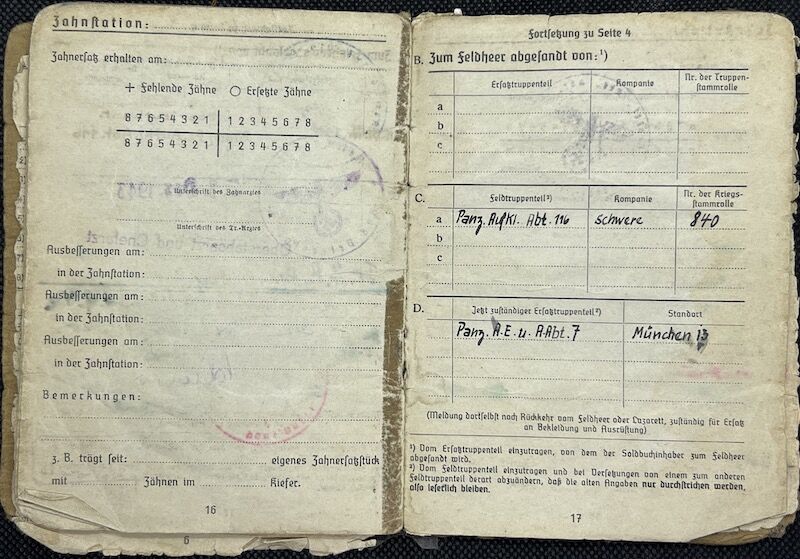 Zahnstation:
Zahnersatz erhalten am:
+ Fehlende Zähne ○ Ersetzte Zähne
8 7 6 5 4 3 2 1 | 1 2 3 4 5 6 7 8
8 7 6 5 4 3 2 1 | 1 2 3 4 5 6 7 8
Unterschrift des Zahnarztes
Unterschrift des Tr.-Arztes
Ausbesserungen am:
in der Zahnstation:
Ausbesserungen am:
in der Zahnstation:
Ausbesserungen am:
in der Zahnstation:
Bemerkungen:
z. B. trägt seit: eigenes Zahnersatzstück
mit Zähnen im Kiefer.
16
6
Fortsetzung zu Seite 4
B. Zum Feldheer abgesandt von:¹)
Ersatztruppenteil Kompanie Nr. der Truppen-
stammrolle
a
b
c
C. Feldtruppenteil²) Kompanie Nr. der Kriegs-
stammrolle
a Panz. Aufkl. Abt. 116 schwere 840
b
c
D. Jetzt zuständiger Ersatztruppenteil²) Standort
Panz. A.E. u. A.Abt. 7 München 13
(Meldung dortselbst nach Rückkehr vom Feldheer oder Lazarett, zuständig für Ersatz
an Bekleidung und Ausrüstung)
¹) Vom Ersatztruppenteil einzutragen, von dem der Soldbuchinhaber zum Feldheer
abgesandt wird.
²) Vom Feldtruppenteil einzutragen und bei Versetzungen von einem zum anderen
Feldtruppenteil derart abzuändern, daß die alten Angaben nur durchstrichen werden,
also leserlich bleiben.
17